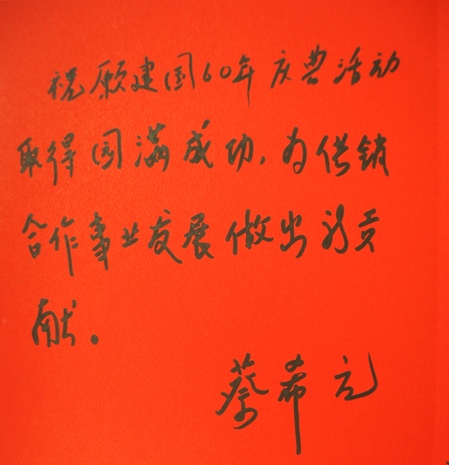 祝愿建国60年庆典活动
取得圆满成功，为供销
合作事业发展做出新贡
献。
蔡希元